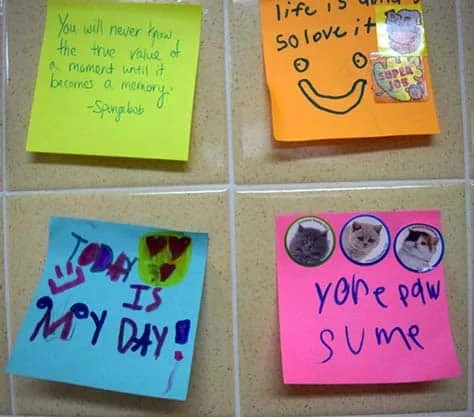 You will never know
the true value of
a moment until it
becomes a memory.
-Spongebob
life is
so love it
SUPER
JOB
TODAY
IS
MY DAY!
yore paw
sume